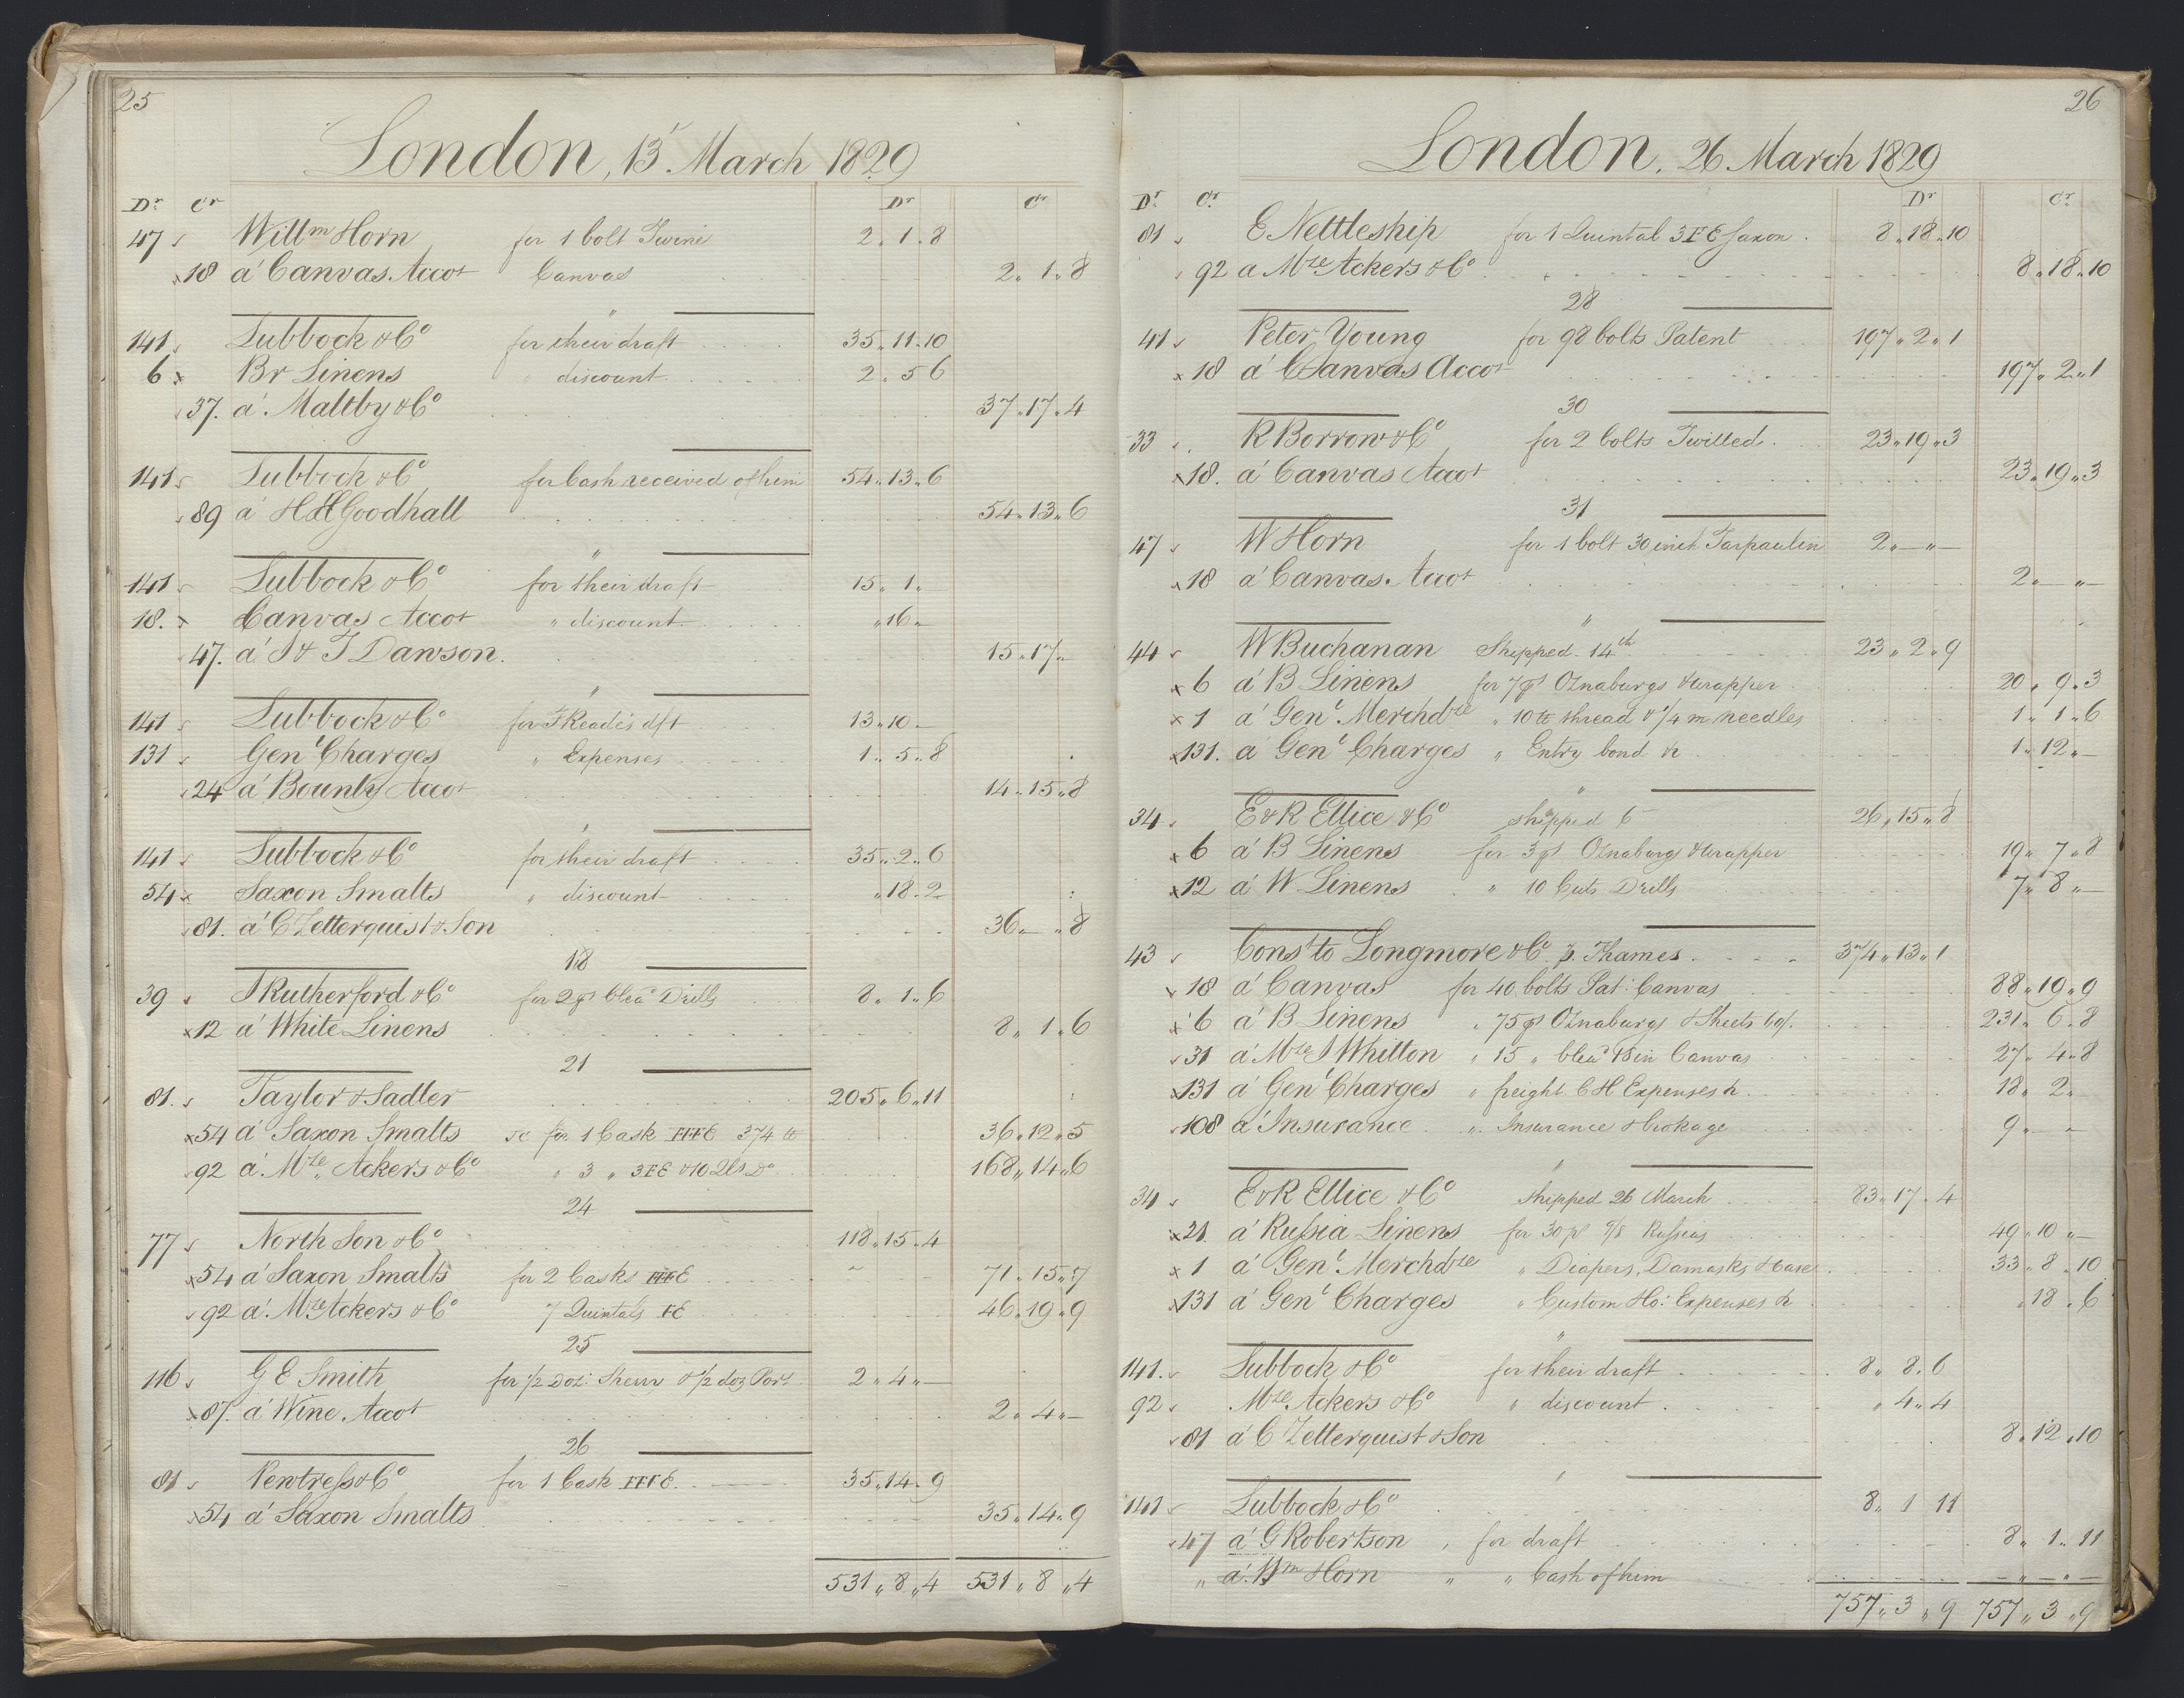 25
London, 13 March 1829
Dr Cr Dr Cr
47 Willm Horn for 1 bolt Twine 2 " 1 " 8
18 á Canvas Accot Canvas 2 " 1 " 8
"
141 Lubbock & Co for their draft 35 " 11 " 10
6 Br Linens " discount 2 " 5 6
37. á Maltby & Co 37 " 17 " 4
141 Lubbock & Co for Cash received of him 54 " 13 " 6
89 á H H Goodhall 54 " 13 " 6
"
141 Lubbock & Co for their draft 15 " 1 " —
18. Canvas Accot " discount " 16 "
47. á J & T Dawson 15 " 17 "
"
141 Lubbock & Co for T Reade's dft 13 " 10 —
131 Genl Charges " Expenses 1 " 5 " 8
24 á Bounty Accot 14 " 15 " 8
"
141 Lubbock & Co for their draft 35 " 2 " 6
54 Saxon Smalts " discount " 18 " 2
81. á C Zetterquist & Son 36 " — " 8
18
39 J Rutherford & Co for 2 ps blead Drills 8 " 1 " 6
12 á White Linens 8 " 1 " 6
21
81. Taylor & Sadler 205 " 6 " 11
54 á Saxon Smalts for 1 Cask FFFE 374 lb 36 " 12 " 5
92 á Mze Ackers & Co " 3 " 3FE & 10 Qls Do 168 " 14 " 6
24
77 North Son & Co 118 " 15 " 4
54 á Saxon Smalts for 2 Casks FFFE 71 " 15 " 7
92 á Mze Ackers & Co 7 Quintals FE 46 " 19 " 9
25
116 G E Smith for 1/2 Doz: Sherry & 1/2 doz Port 2 " 4 " —
87. á Wine Accot 2 " 4 " —
26
81 Pewtress & Co for 1 Cask FFFE. 35 " 14 " 9
54 á Saxon Smalts 35 " 14 " 9
531 " 8 " 4 531 " 8 " 4
26
London, 26 March 1829
Dr Cr Dr Cr
81 E Nettleship for 1 Quintal 3FE Saxon 8 " 18 " 10
92 a Mze Ackers & Co 8 " 18 " 10
28
41 Peter Young for 98 bolts Patent 197 " 2 " 1
18 á Canvas Accot 197 " 2 " 1
30
33 R Borrow & Co for 2 bolts Twilled 23 " 19 " 3
18. á Canvas Accot 23 " 19 " 3
31
47 W Horn for 1 bolt 30 inch Tarpaulin 2 " — " —
18 á Canvas Accot 2 " — " —
"
44 W Buchanan Shipped 14th 23 " 2 " 9
6 á B Linens for 7 ps Oznaburgs & wrapper 20 " 9 " 3
1 á Genl Merchdze " 10 lb thread & 1/4 m needles 1 " 1 " 6
131. á Genl Charges " Entry bond &c 1 " 12 " —
"
34 E & R Ellice & Co shipped 6 26 " 15 " 8
6 á B Linens for 3 ps Oznaburgs & wrapper 19 " 7 " 8
12 á W Linens " 10 Cuts Drills 7 " 8 " —
43 Const to Longmore & Co p. Thames 374 " 13 " 1
18 á Canvas for 40 bolts Pat: Canvas 88 " 19 " 9
6 á B Linens " 75 ps Oznaburgs & Sheets 60/. 231 " 6 " 8
31 á Mze J Whitton " 15 " blead 18 in Canvas 27 " 4 " 8
131 á Genl Charges " freight C H Expenses &c 18 " 2 "
108 á Insurance " Insurance & brokage 9 " — "
"
34 E & R Ellice & Co Shipped 26 March 83 " 17 " 4
21. á Russia Linens for 30 ps 9/8 Russias 49 " 10 " —
1 á Genl Merchdze " Diapers, Damasks & Case 33 " 8 " 10
131 á Genl Charges " Custom Ho: Expenses &c " 18 " 6
"
141. Lubbock & Co for their draft 8 " 8 " 6
92 Mze Ackers & Co " discount " 4 " 4
81 á C Zetterquist & Son 8 " 12 " 10
141 Lubbock & Co 8 " 1 11
47 á G Robertson " for draft 8 " 1 " 11
" á Wm Horn " " Cash of him — " — " —
757 " 3 " 9 757 " 3 " 9